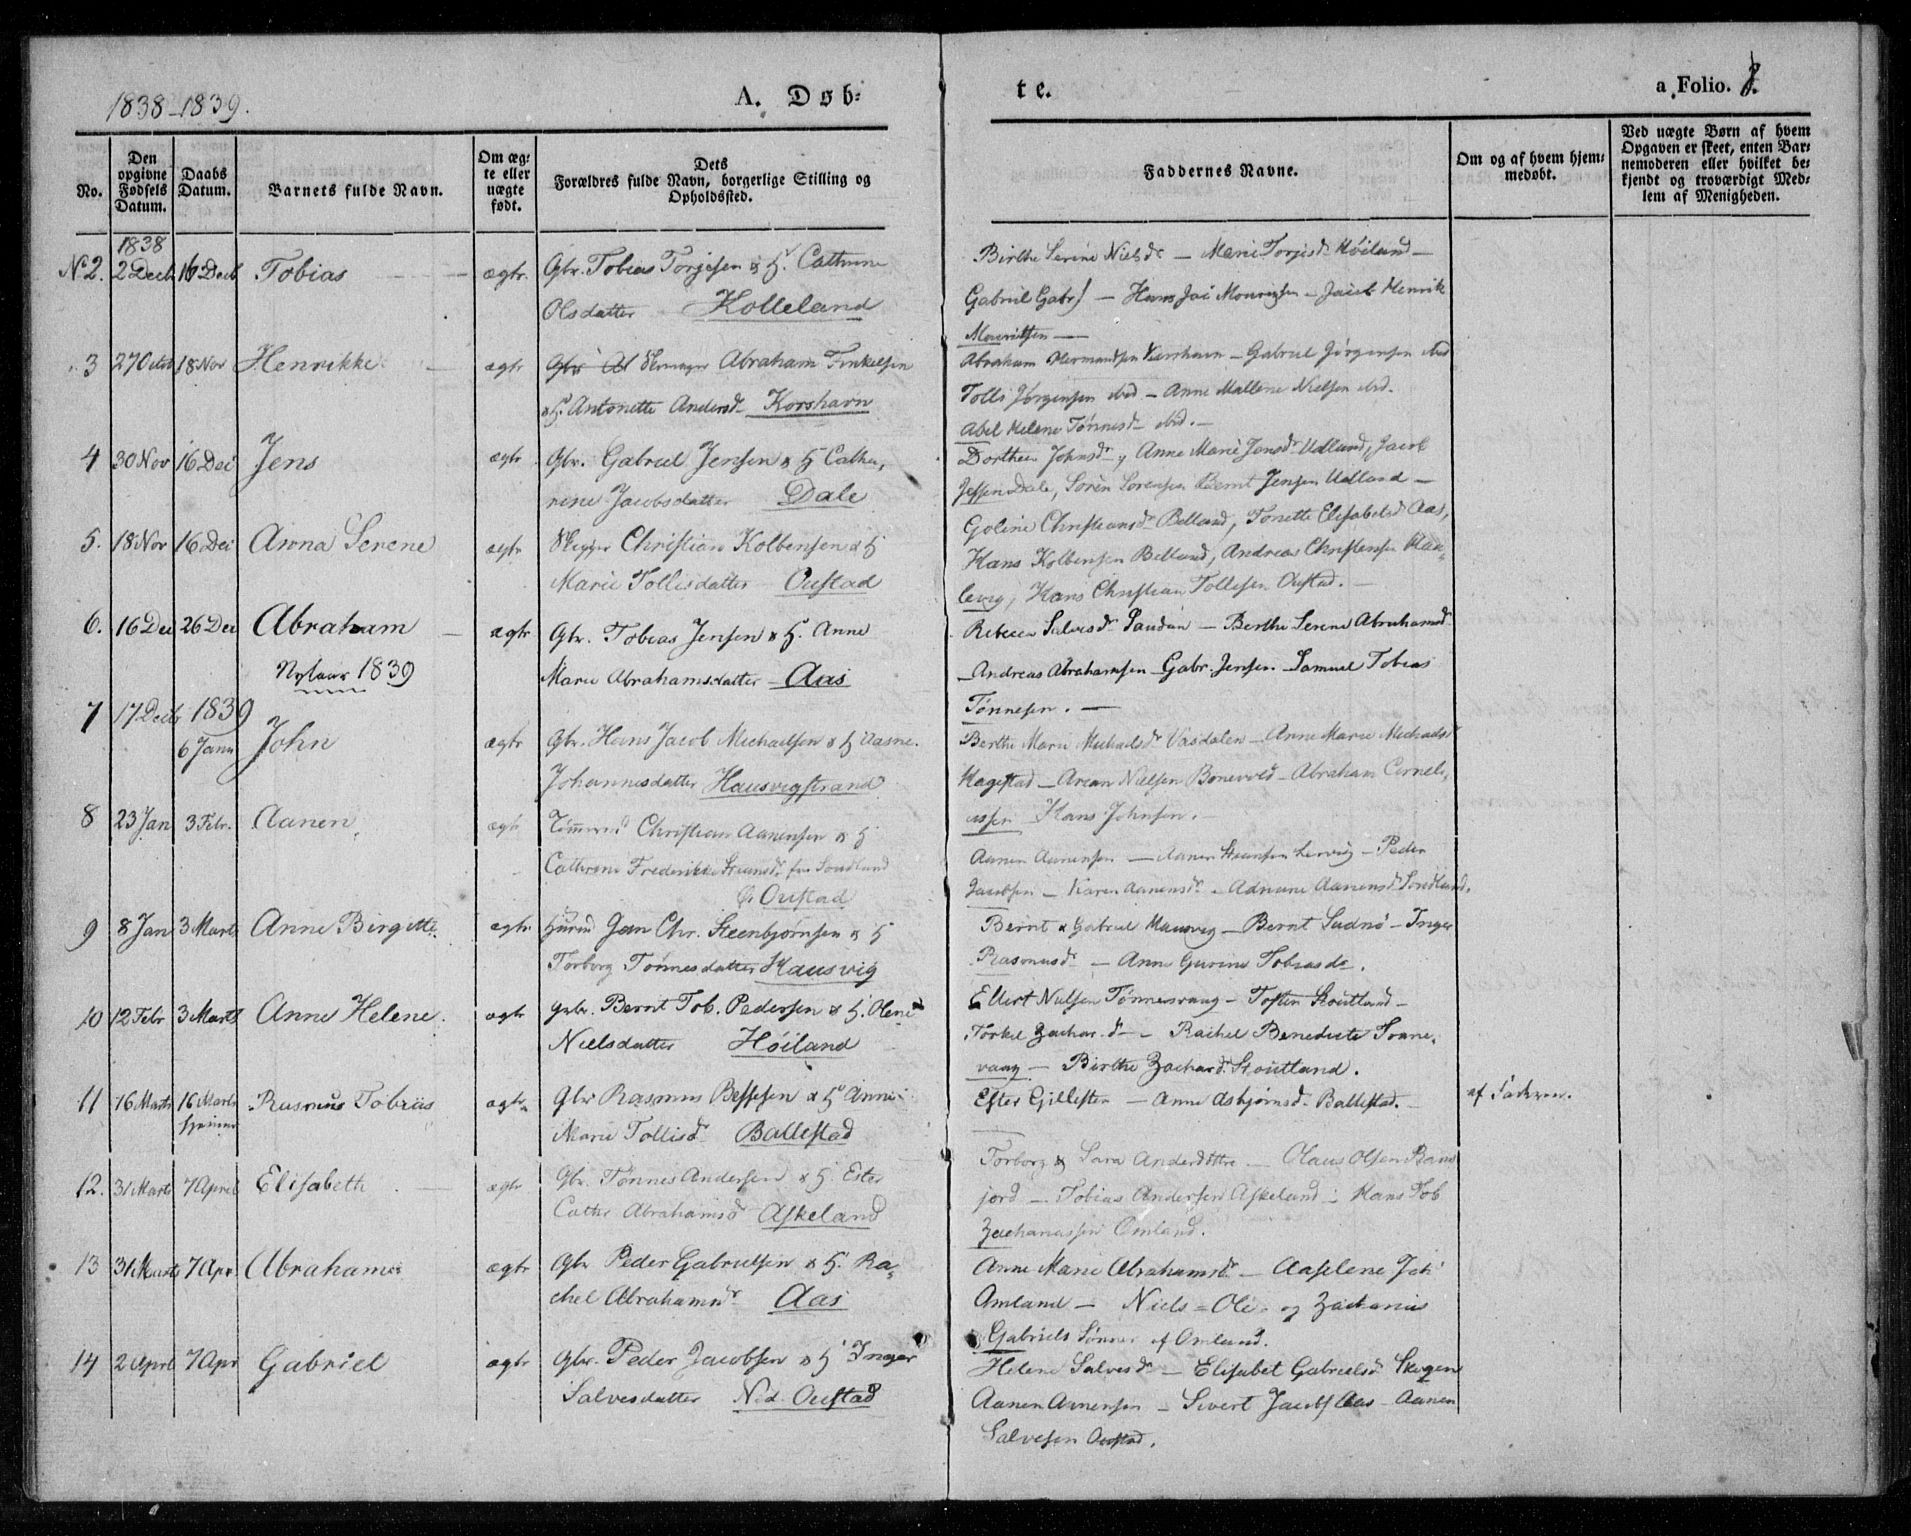 1838-1839.
A. Døb-
te.
a Folio. 8.
No.
Den opgivne Fødsels Datum.
Daabs Datum.
Barnets fulde Navn.
Om ægte eller uægte født.
Dets
Forældres fulde Navn, borgerlige Stilling og
Opholdssted.
Faddernes Navne.
Om og af hvem hjem-
medøbt.
Ved uægte Børn af hvem
Opgaven er skeet, enten Bar-
nemoderen eller hvilket be-
kjendt og troværdigt Med-
lem af Menigheden.
1838
No 2. 2 Decb 16 Decb Tobias ægtr. Gbr. Tobias Torjesen & H. Cathrine
Olsdatter Kolleland
Birthe Serine Nielsdr — Marie Torjisdr Høiland —
Gabriel Gabrs — Hans Jac Mouritzsen — Jacob Henrik
Mouritsen —
3 27 Octob 18 Nov Henrikke ægtr Abraham Finkelsen
& H. Antonette Andersdr Korshavn
Abraham Hermandsen Korshavn — Gabriel Jørgensen ibid
Tolls Jørgensen ibid — Anne Mallene Nielsen ibid.
Abel Helene Tønnesdr ibid. —
4 30 Nov 16 Dec Jens ægtr Gbr. Gabriel Jensen & H Cathe,
rine Jacobsdatter Dale
Dorthea Johnsdr, Anne Marie Jensdr Udland, Jacob
Jessen Dale, Søren Sørensen Bernt Jensen Udland —
5. 18 Nov 16 Dec Anna Serene ægtr Christian Kolbensen & H
Marie Tollisdatter Oustad
Goline Christiansdr Belland, Tonette Elisabetsdr Aas,
Hans Kolbensen Belland, Andreas Christensen
levig, Hans Christian Tollesen Oustad. —
6. 16 Dec 26 Dec Abraham ægtr Gbr. Tobias Jensen & H. Anne
Marie Abrahamsdatter — Aas
Rebecca Salvesdr — Berthe Serene Abrahamsd
Andreas Abrahamsen — Gabr. Jensen — Samuel Tobias
Tønnesen. —
Nytaar 1839
7 17 Decb 1839
6 Janu John ægtr Gbr. Hans Jacob Michaelsen & H Aasne
Johannesdatter Hausvigstrand
Berthe Marie Michaelsdr Vasdalen — Anne Marie Michaelsdr
Hagestad — Arean Nielsen Bonevold — Abraham Corneli,
ussen Hans Johnsen. —
8 23 Jan 3 Febr. Aanen ægtr Christian Aanensen & H
Cathrine Frederikke
Oustad
Aanen Aanensen — Aanen — Peder
Jacobsen — Karen Aanensdr — Adriane Aanensdr Sondland.
9 8 Jan 3 Marts Anne Birgitte ægtr. Jan Chr. Steenbjørnsen & H
Torborg Tønnesdatter Hausvig
Bernt & Gabriel Hausvig — Bernt — Inger
Rasmusdr — Anne Gurine Tobiasdr.
10 12 Febr 3 Marts Anne Helene. ægtr Gbr. Bernt Tob. Pedersen & H. Olene
Nielsdatter Høiland
Ellert Nielsen Tønnesvaag — Tosten Skoutland —
Torkel Zachar.dr — Rachel Benedicte Tonne,
vaag — Birthe Zachardr Skoutland.
11 16 Marts 16 Marts
hjemme Rasmus Tobias ægtr Gbr Rasmus Bessesen & H Anne
Marie Tollisdr Ballestad
Ester Gillesten — Anne Asbjørnsdr Ballestad. —
af Faderen.
12. 31 Marts 7 April Elisabeth ægtr Gbr. Tønnes Andersen & H. Ester
Cathr Abrahamsd Askeland
Torborg & Sara Andersdøttre — Olaus Olsen
jord — Tobias Andersen Askeland — Hans Tob
Zachariassen Omland.
13 31 Marts 7 Apr Abraham ægtr Gbr Peder Gabrielsen & H. Ra,
chel Abrahamsdr Aas
Anne Marie Abrahamsdr — Aaselene
Amland — Niels — Ole — og Zacharias
Gabriels Sønner af Omland.
14 2 Aprl 7 Apr Gabriel ægtr Gbr. Peder Jacobsen & H Inger
Salvesdatter Ned. Oustad
Helene Salvesdr — Elisabet Gabrielsd Skogen
Aanen Aanensen — Sivert Jacobs Aas — Aanen
Salvesen Oustad.